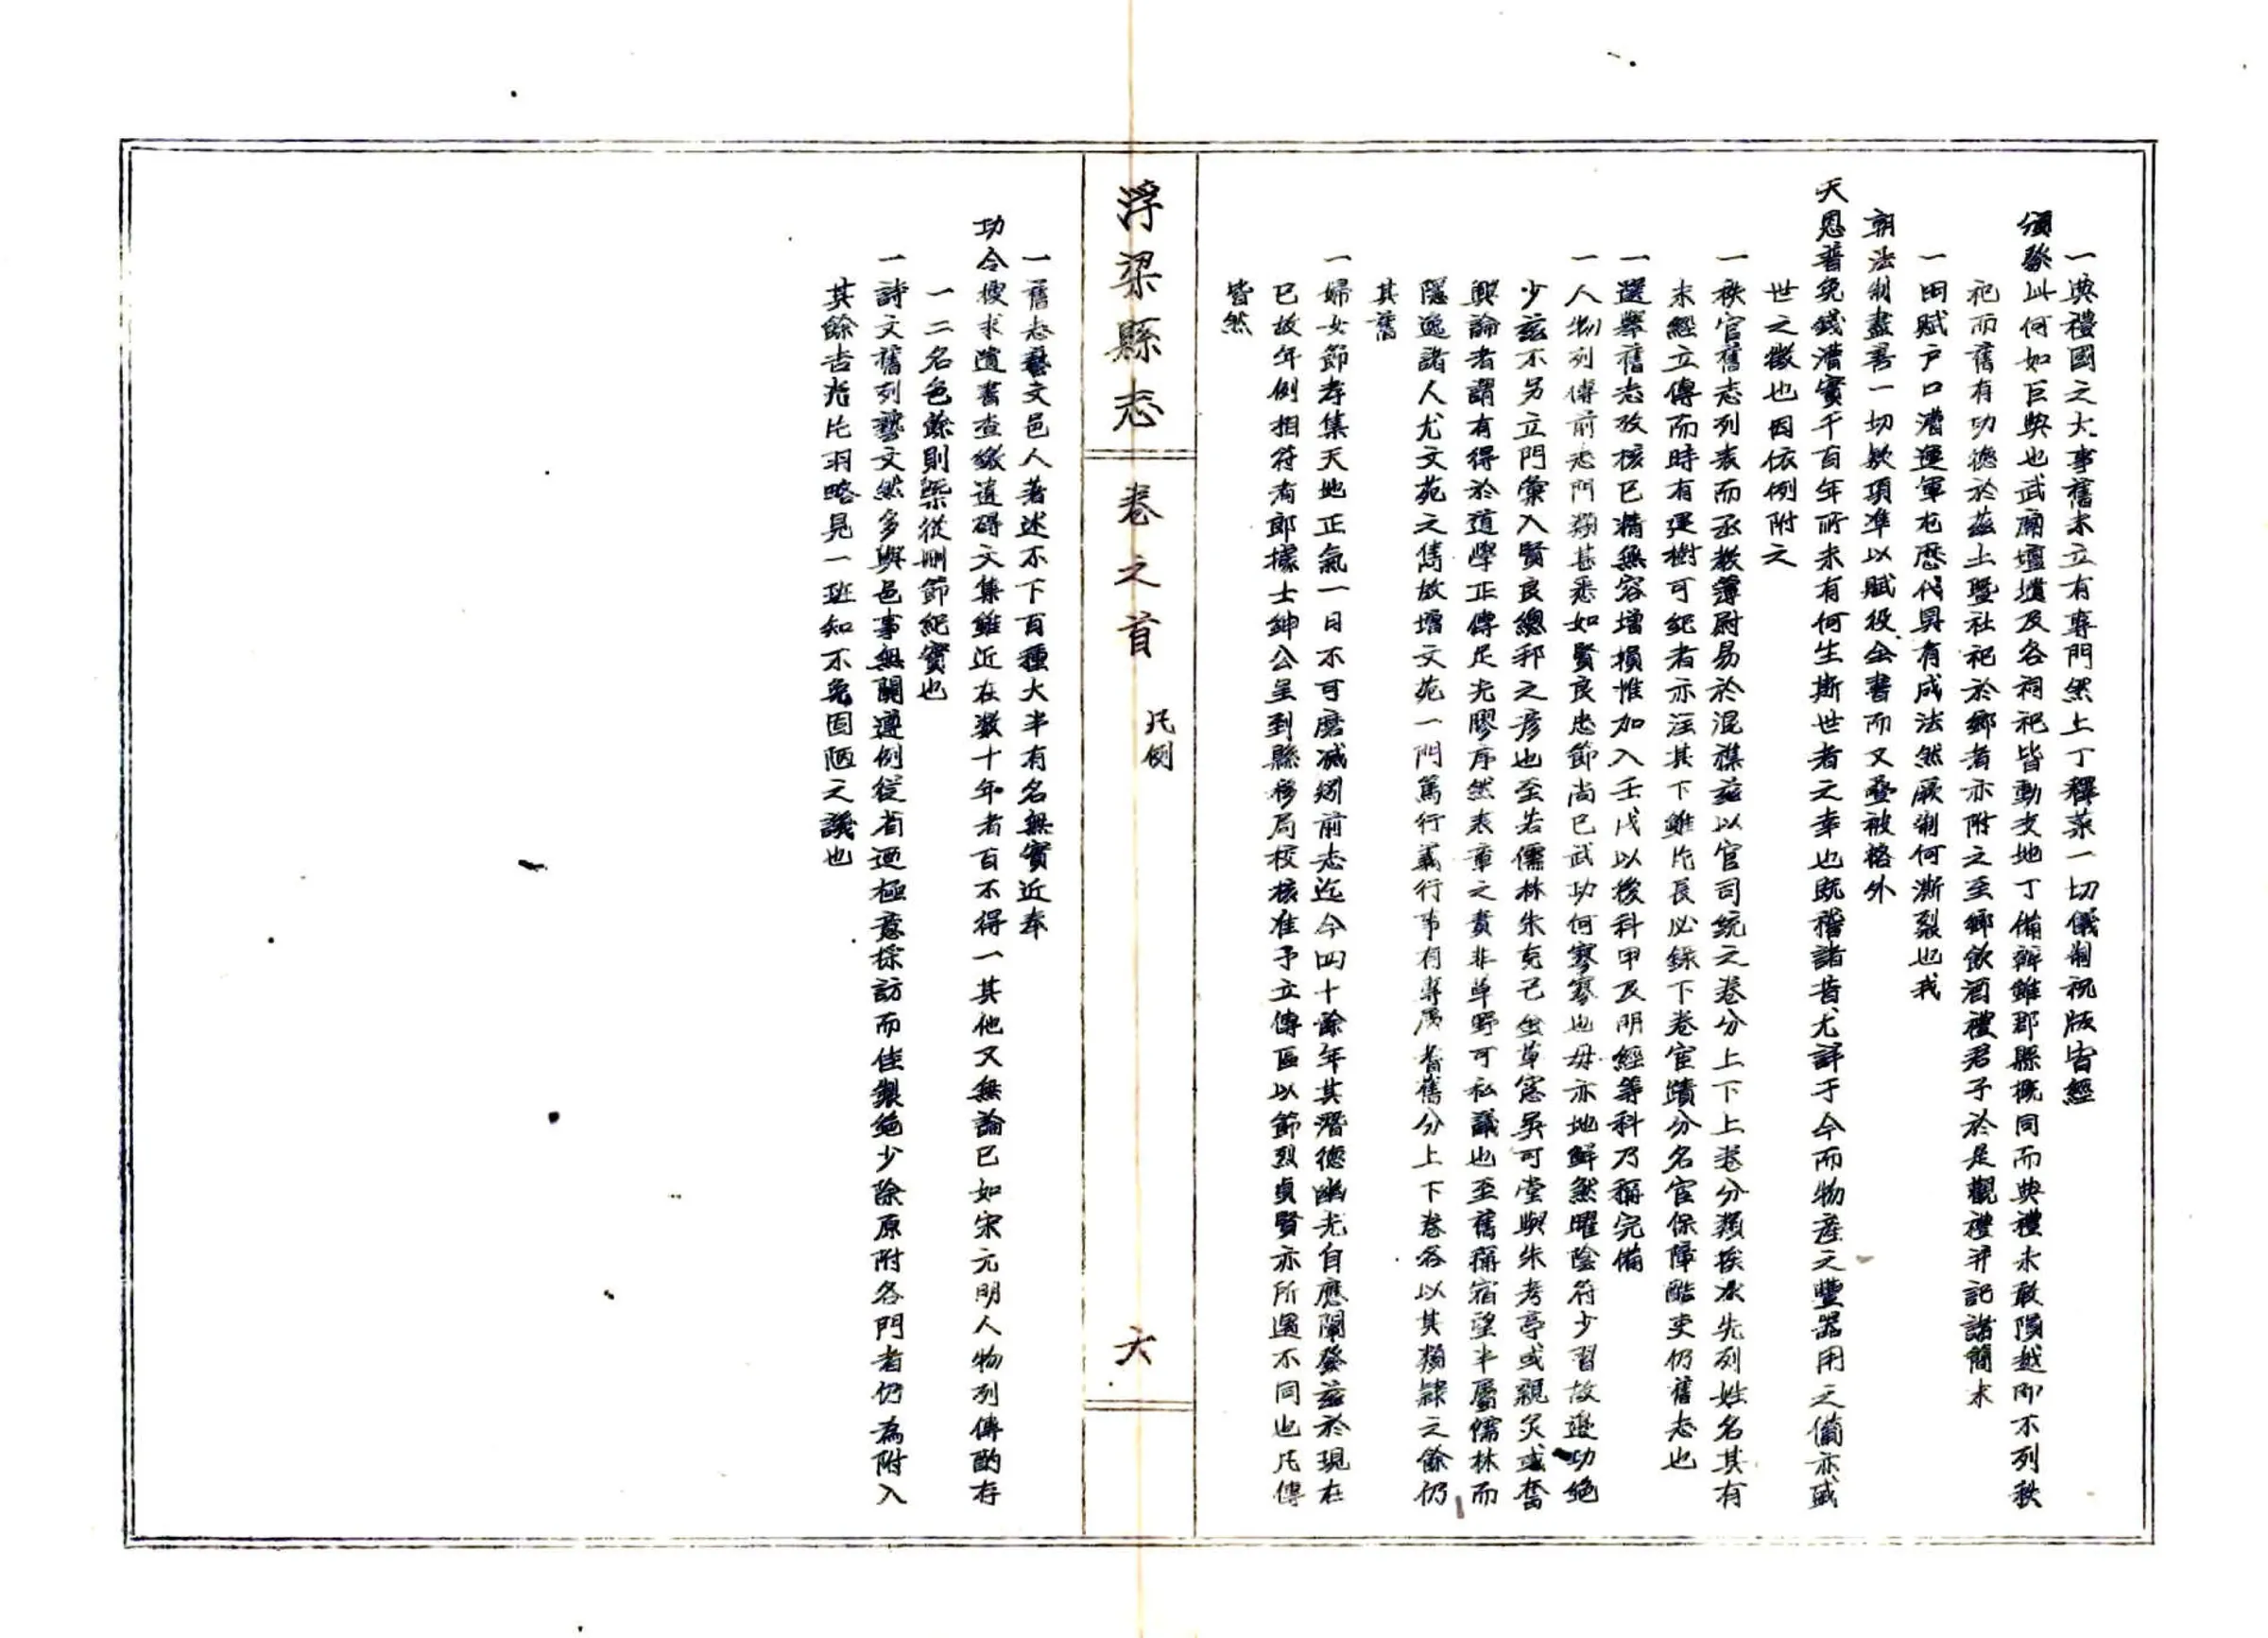 一典禮國之大事舊未立有專門然上丁釋菜一切儀制祝版皆經
頒發此何如巨典也武廟壇壝及各祠祀皆動支地丁備辦雖郡縣概同而典禮未敢隕越即不列秩
祀而舊有功德於茲土暨社祀於鄉者亦附之至鄉飲酒禮君子於是觀禮并記諸簡末
一田賦户口漕運軍屯歷代具有成法然厥制何漸裂也我
朝法制盡善一切欵項準以賦役全書而又疊被格外
天恩普免錢漕實千百年所未有何生斯世者之幸也既稽諸昔尤詳于今而物產之豐器用之備亦盛
世之徵也因依例附之
一秩官舊志列表而丞教簿尉易於混襍茲以官司統之卷分上下上卷分類挨次先列姓名其有
未經立傳而時有建樹可紀者亦注其下雖片長必録下卷宦蹟分名宦保障酷吏仍舊志也
一選舉舊志攷核已精無容增損惟加入壬戌以後科甲及明經等科乃稱完備
一人物列傳前志門類甚悉如賢良忠節尚已武功何寥寥也毋亦地鮮煞曜陰符少習故邊功絕
少茲不另立門彙入賢良總邦之彥也至若儒林朱克己金草窓吳可堂與朱考亭或親炙或奮
興論者謂有得於道學正傳足光膠序然表章之責非草野可私議也至舊稱宿望半屬儒林而
隱逸諸人尤文苑之儁故增文苑一門篤行義行事有專屬耆舊分上下卷各以其類隸之餘仍
其舊
一婦女節孝集天地正氣一日不可磨滅矧前志迄今四十餘年其潛德幽光自應闡發茲於現在
已故年例相符者即據士紳公呈到縣移局校核准予立傳區以節烈貞賢亦所遇不同也凡傳
皆然
浮梁縣志
卷之首
凡例
六
一舊志藝文邑人著述不下百種大半有名無實近奉
功令搜求遺書查繳違碍文集雖近在數十年者百不得一其他又無論已如宋元明人物列傳酌存
一二名色餘則槩從刪節紀實也
一詩文舊列藝文然多與邑事無關遵例從省迺極意採訪而佳製絕少除原附各門者仍為附入
其餘吉光片羽略見一班知不免固陋之譏也